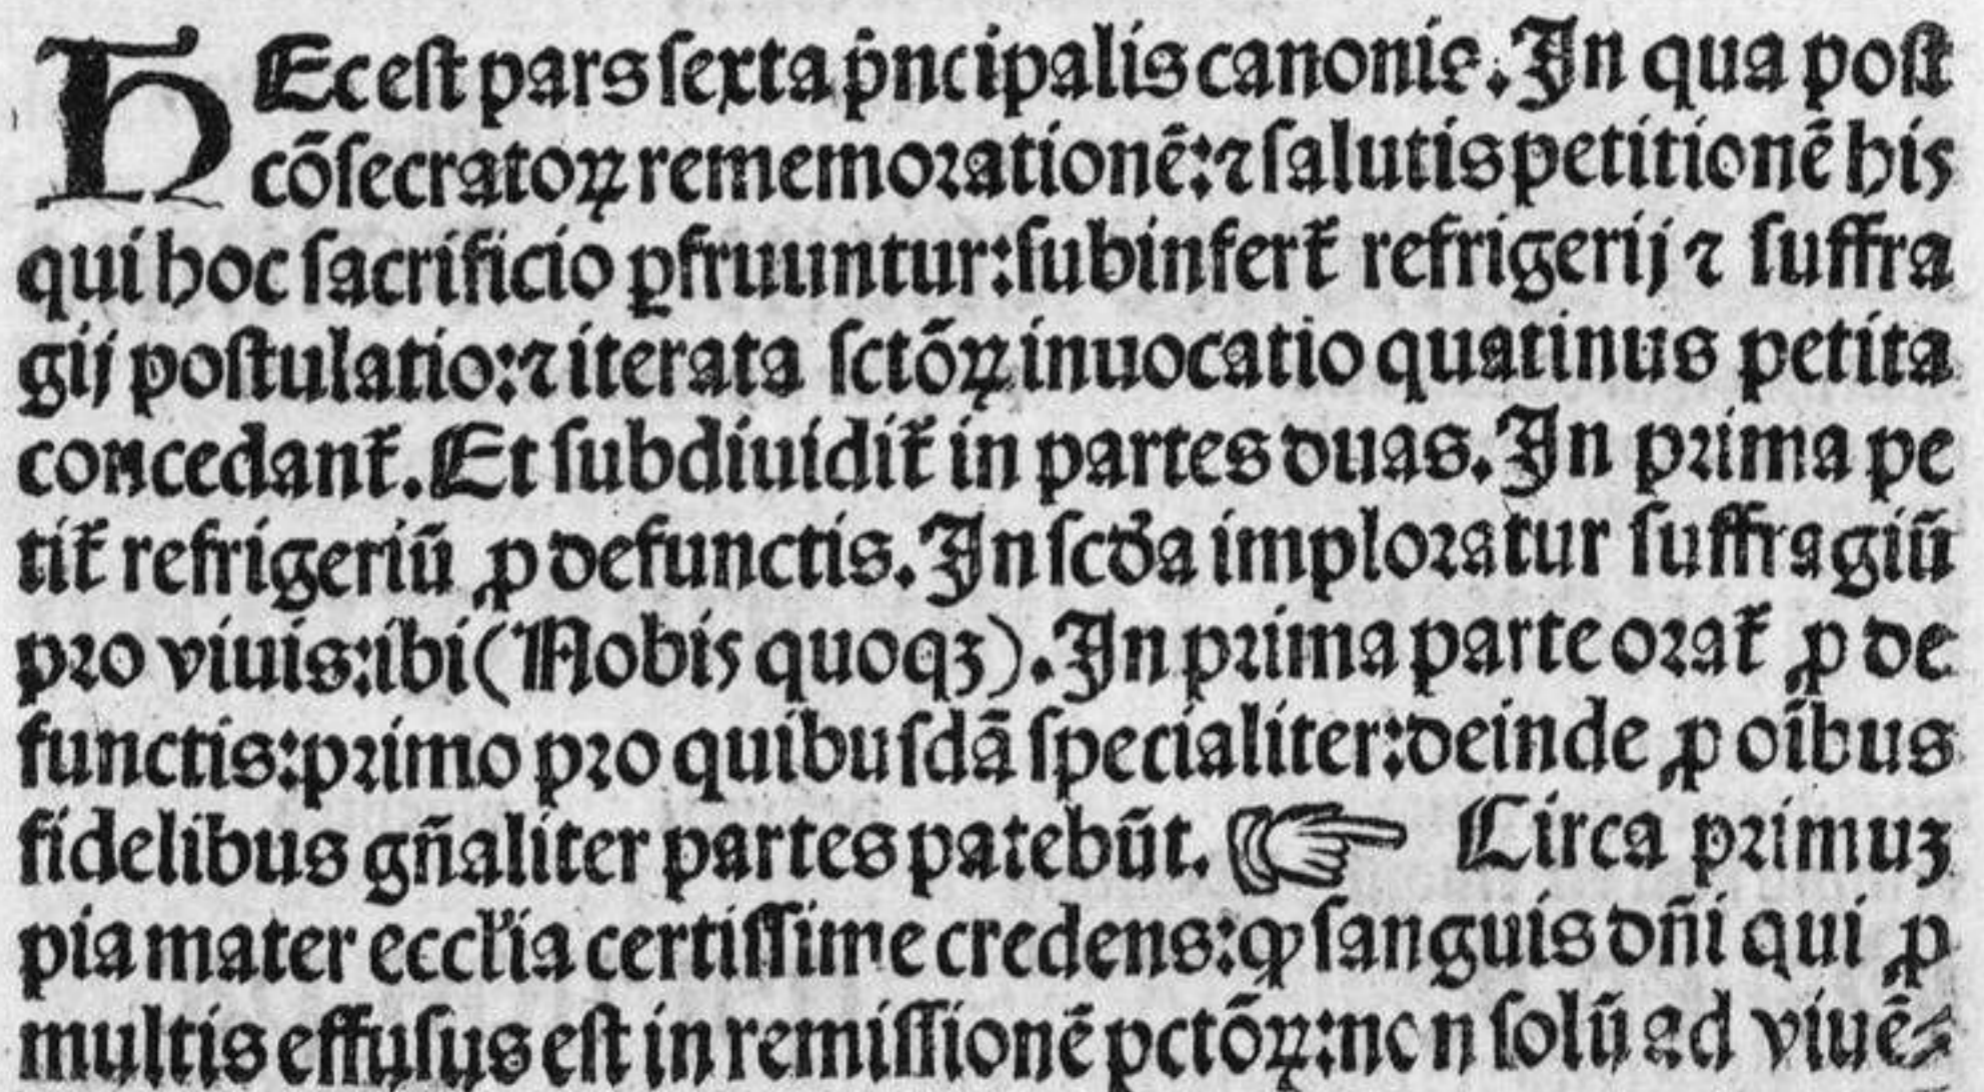 HEc est pars ſexta p̃ncipalis canonis. In qua poſt
cõſecratoꝝ rememoꝛationẽ: ⁊ ſalutis petitionẽ his
qui hoc ſacrificio ꝑfruuntur: ſubinfert̃ refrigerij ⁊ ſuffra
gij poſtulatio: ⁊ iterata ſctõꝝ inuocatio quatinus petita
concedant̃. Et ſubdiuidit̃ in partes duas. In pꝛima pe
tit̃ refrigeriũ ꝓ defunctis. In ſcd̃a imploꝛatur ſuffragiũ
pꝛo viuis: ibi (Nobis quoqꝫ). In pꝛima parte oꝛat̃ ꝓ de
functis: pꝛimo pꝛo quibuſdã ſpecialiter: deinde ꝓ oĩbus
fidelibus gñaliter partes patebũt. ☞ Circa pꝛimuꝫ
pia mater eccl̃ia certiſſime credens: ꝙ ſanguis dñi qui ꝓ
multis effuſus eſt in remiſſionẽ pctõꝝ: non ſolũ ad viuẽ⸗